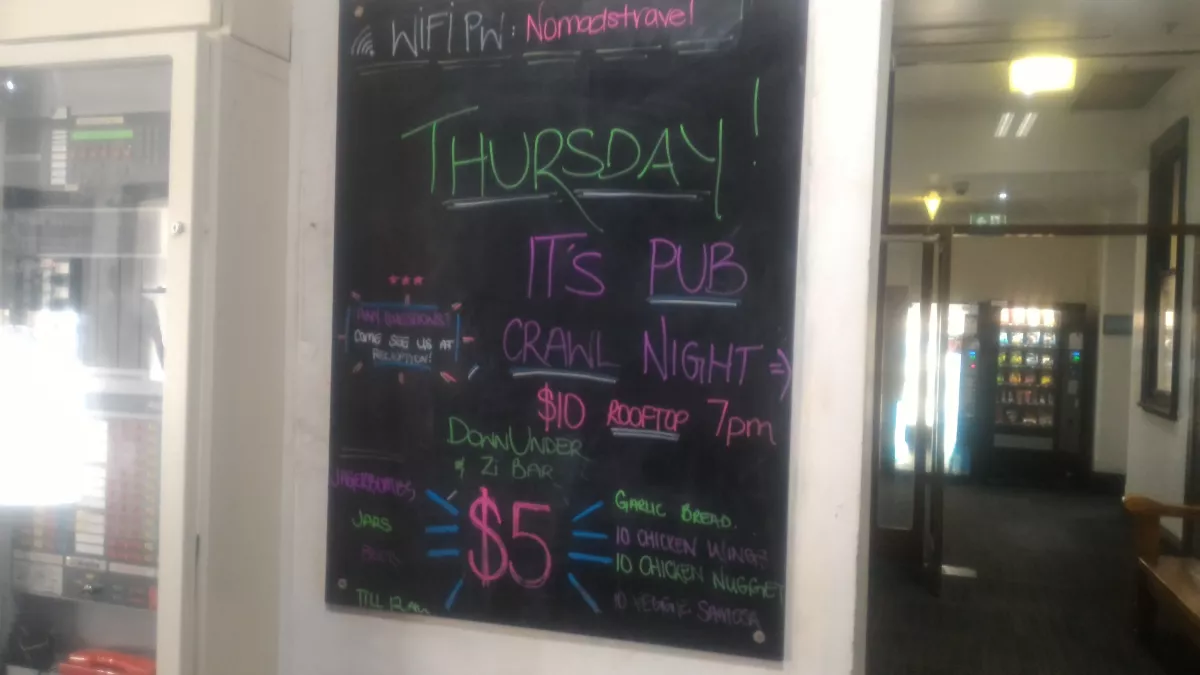 WIFI PW: Nomadstravel
THURSDAY!
IT'S PUB
CRAWL NIGHT =)
$10 ROOFTOP 7pm
ANY QUESTIONS?
COME SEE US AT
RECEPTION!
DOWNUNDER
& Zi BAR
$5
JAGERBOMBS
JARS
TILL
GARLIC BREAD.
10 CHICKEN WINGS
10 CHICKEN NUGGET
10 VEGGIE SAMOSA